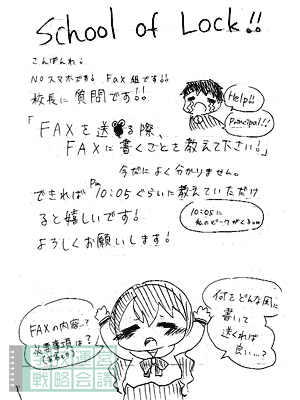 School of Lock!!
こんばんわ!
NOスマホです! FAX組です!!
校長に質問です!!
Help!!
Principal!!!
「FAXを送る際、
FAXに書くことを教えて下さい!」
今だによく分かりません。
できればPm10:05ぐらいに教えていただけ
ると嬉しいです!
10:05に
私のピークがくるのw
よろしくお願いします!
FAXの内容…?
必要事項は?
何をどんな風に
書いて
送くれば
良い…?
運営
戦略会議